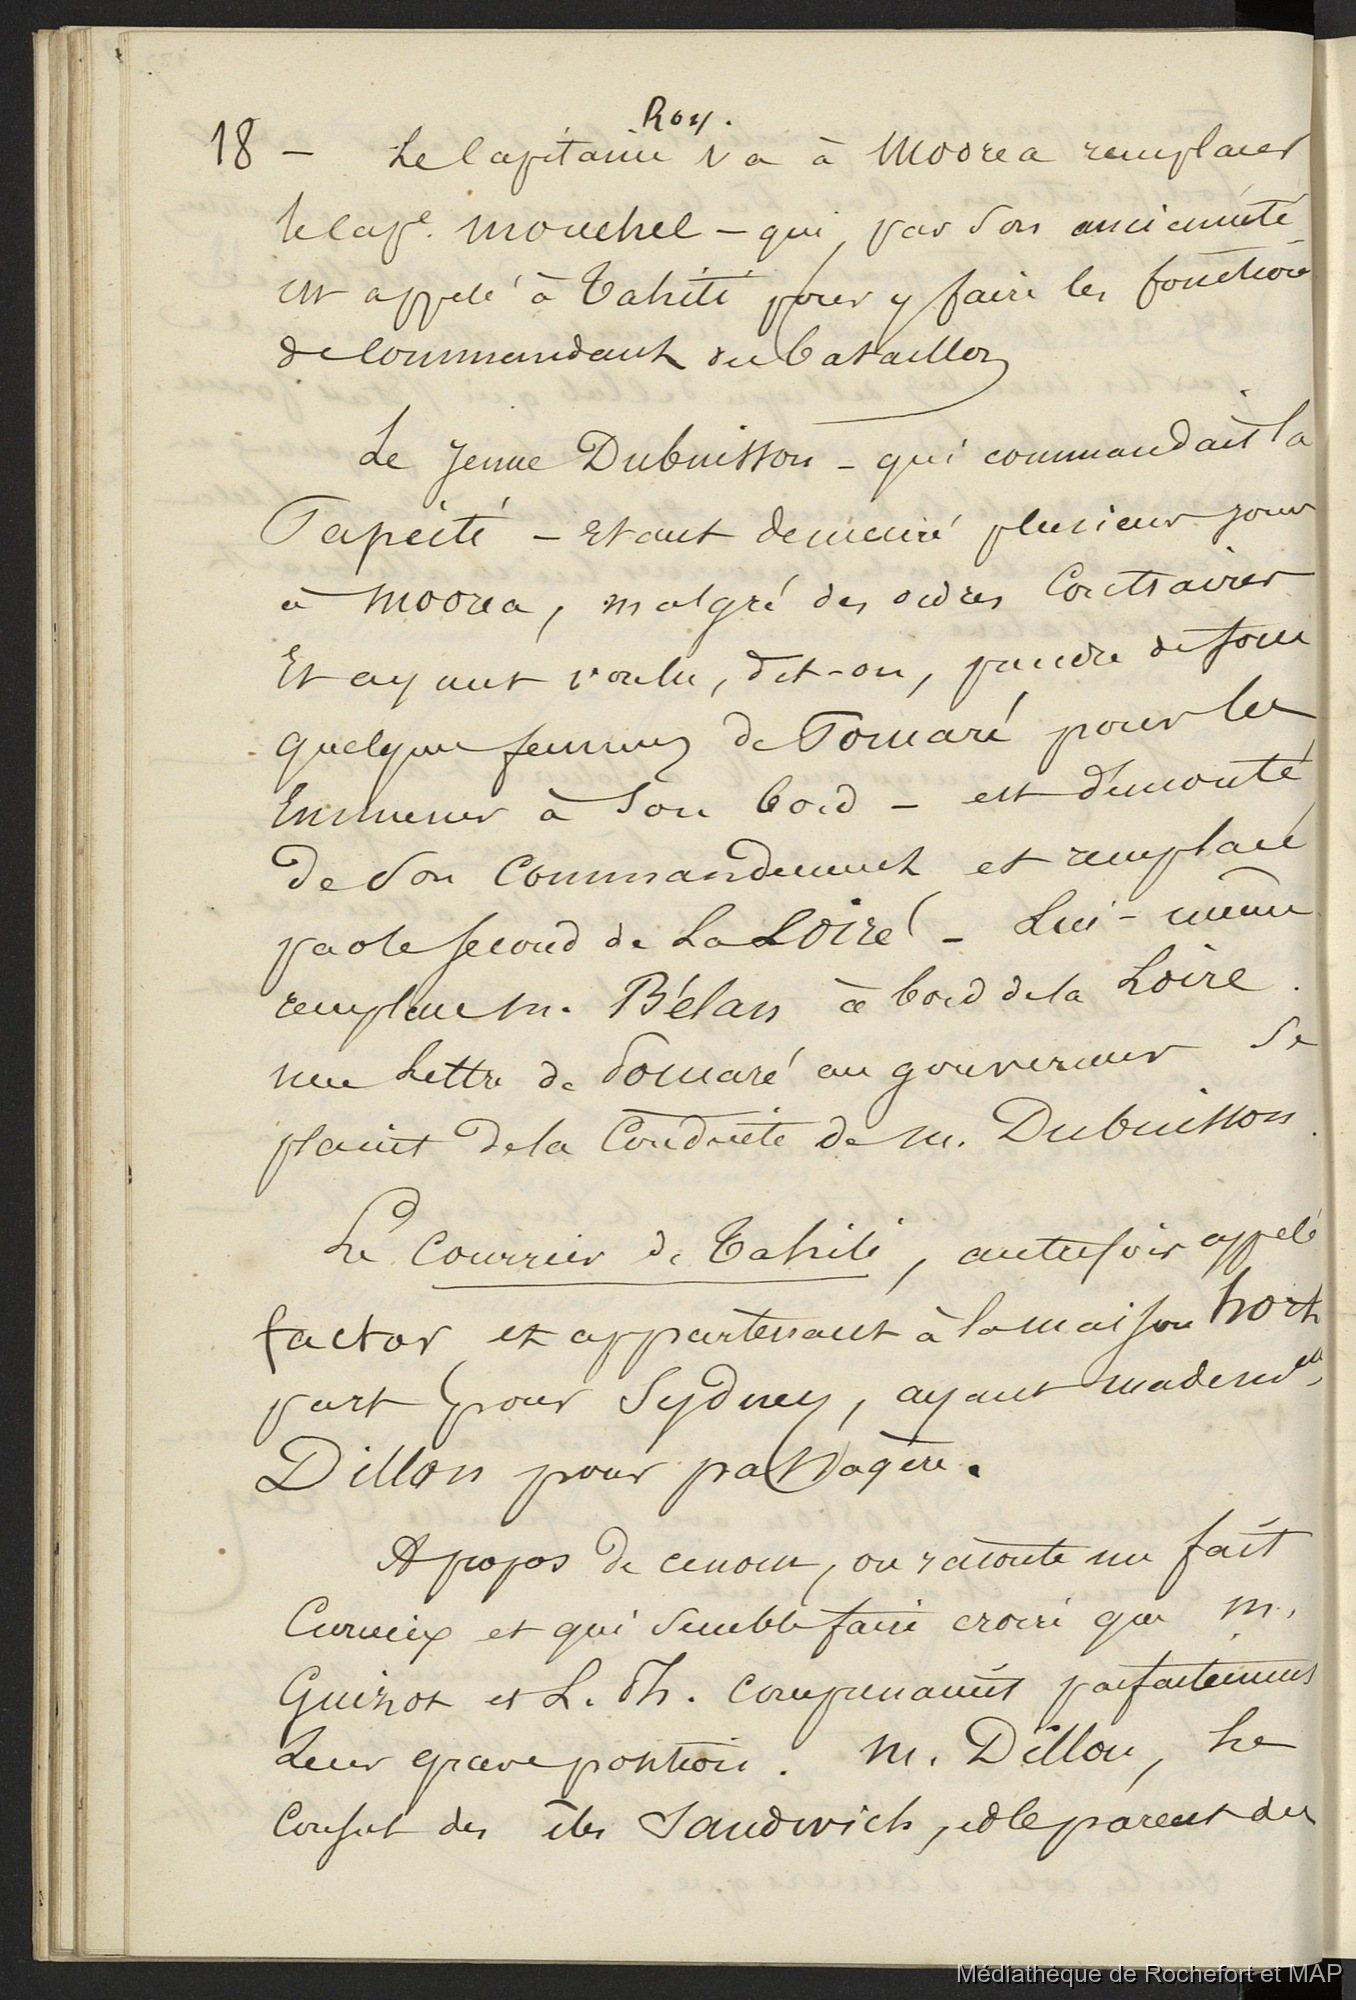 Roy.
18 – Le Capitaine va à Moorea remplacer
le cape. Mouchel – qui, par son ancienneté
est appelé à Tahiti pour y faire les fonctions
de Commandant du bataillon
Le jeune Dubuisson – qui commandait la
Papéïté – etant demeuré plusieurs jours
à Moorea, malgré des ordres Contraires
Et ayant voulu, dit-on, prendre de force
quelques femmes de Pomaré pour les
Emmener à son bord – est démonté
de son Commandement et remplacé
par le second de la Loire – Lui-même
remplace M. Bélan à bord de la Loire.
une Lettre de Pomaré au gouverneur se
plaint de la Conduite de M. Dubuisson.
Le Courrier de Tahiti, autrefois appelé
factor et appartenant à la maison hort
part pour Sydney, ayant
Dillon pour passagère.
A propos de ce nom, on raconte un fait
Curieux et qui semble faire croire que M.
Guizot et L. Ph. comprenaient parfaitement
Leur grave position. M. Dillon, Le
Consul des îles Sandwich, est le parent du
Médiathèque de Rochefort et MAP